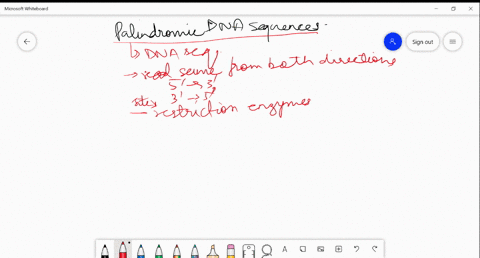 Microsoft Whiteboard
Sign out
Palindromic DNA Sequences.
↳ DNA seq
→ read same from both directions
5' → 3'
3' → 5'
sites
— restriction enzymes